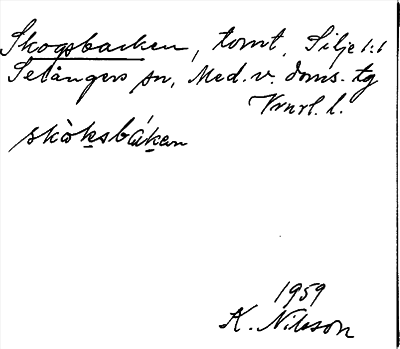 Skogsbacken, tomt, Silje 1:1
Selångers sn, Med. v. doms. tg
Vrnrl. l.
skòksbáken
1959
K. Nilsson